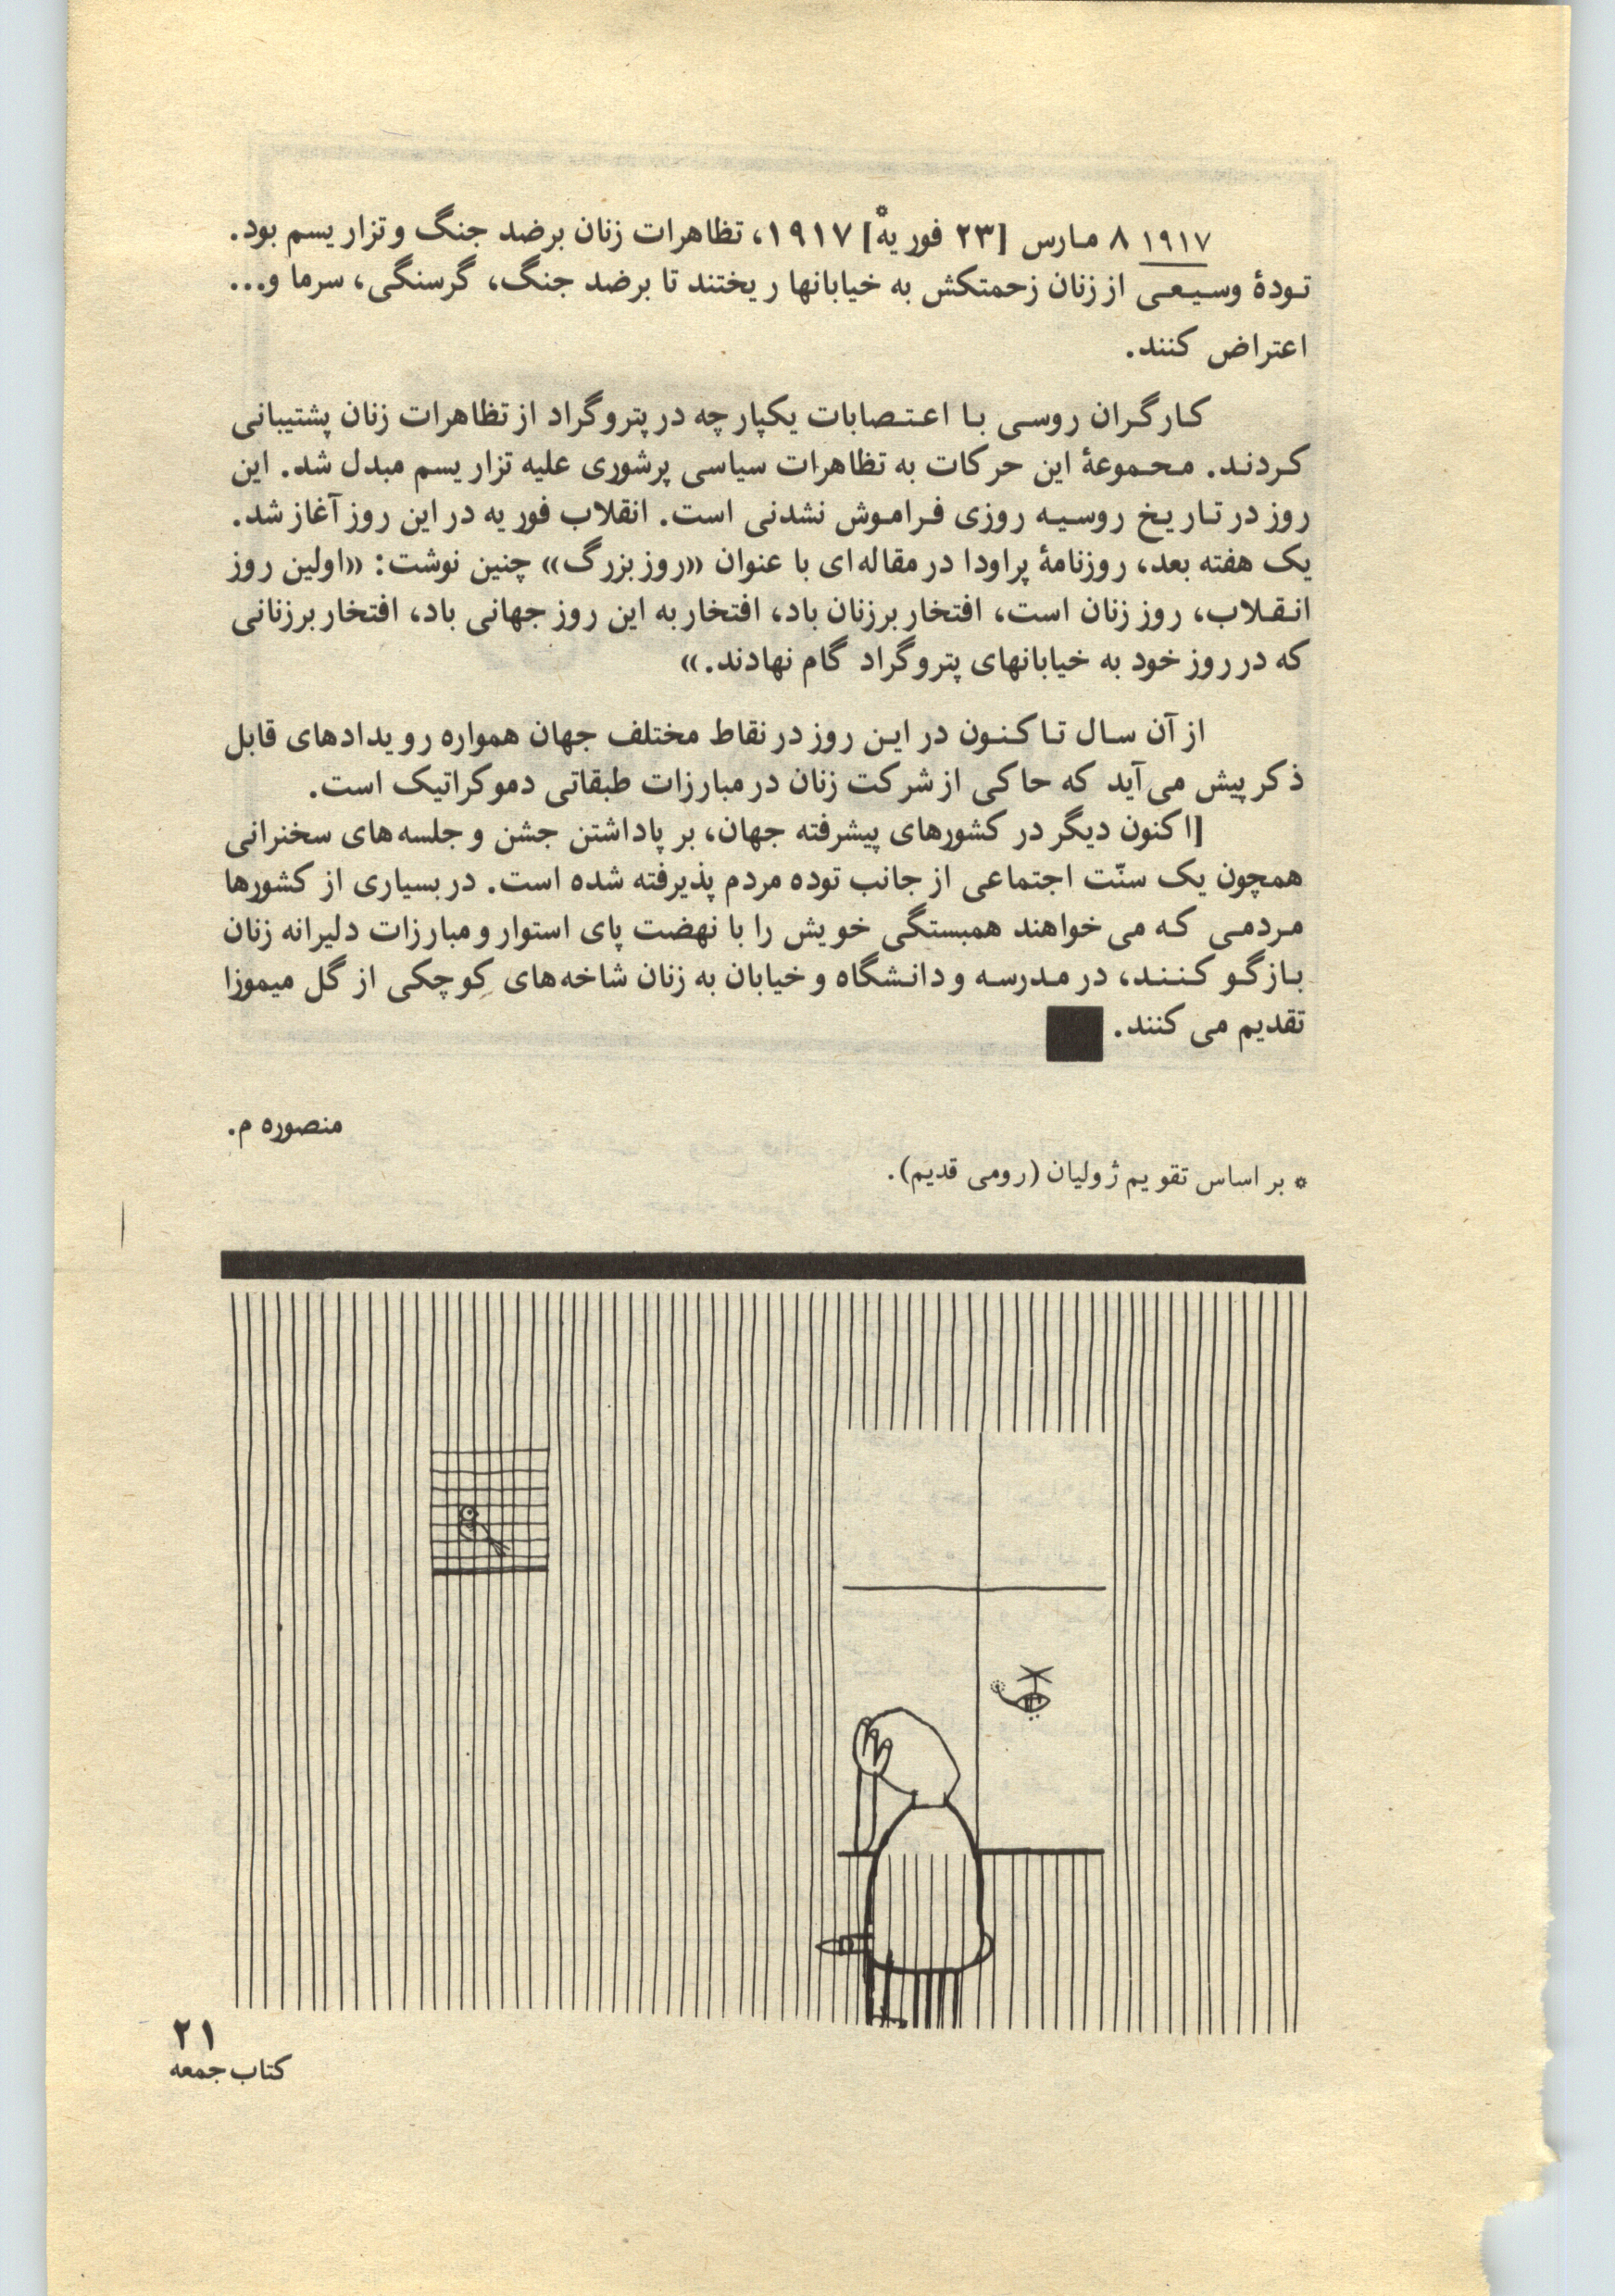 ۱۹۱۷ ۸ مارس [۲۳ فوریه*] ۱۹۱۷، تظاهرات زنان برضد جنگ و تزاریسم بود.
تودهٔ وسیعی از زنان زحمتکش به خیابانها ریختند تا برضد جنگ، گرسنگی، سرما و...
اعتراض کنند.
کارگران روسی با اعتصابات یکپارچه در پتروگراد از تظاهرات زنان پشتیبانی
کردند. مجموعهٔ این حرکات به تظاهرات سیاسی پرشوری علیه تزاریسم مبدل شد. این
روز در تاریخ روسیه روزی فراموش نشدنی است. انقلاب فوریه در این روز آغاز شد.
یک هفته بعد، روزنامهٔ پراودا در مقاله‌ای با عنوان «روز بزرگ» چنین نوشت: «اولین روز
انقلاب، روز زنان است، افتخار برزنان باد، افتخار به این روز جهانی باد، افتخار برزنانی
که در روز خود به خیابانهای پتروگراد گام نهادند.»
از آن سال تا کنون در این روز در نقاط مختلف جهان همواره رویدادهای قابل
ذکر پیش می‌آید که حاکی از شرکت زنان در مبارزات طبقاتی دموکراتیک است.
[اکنون دیگر در کشورهای پیشرفته جهان، بر پاداشتن جشن و جلسه‌های سخنرانی
همچون یک سنّت اجتماعی از جانب توده مردم پذیرفته شده است. در بسیاری از کشورها
مردمی که می‌خواهند همبستگی خویش را با نهضت پای استوار و مبارزات دلیرانه زنان
بازگو کنند، در مدرسه و دانشگاه و خیابان به زنان شاخه‌های کوچکی از گل میموزا
تقدیم می کنند.
منصوره م.
* بر اساس تقویم ژولیان (رومی قدیم).
۲۱
کتاب جمعه